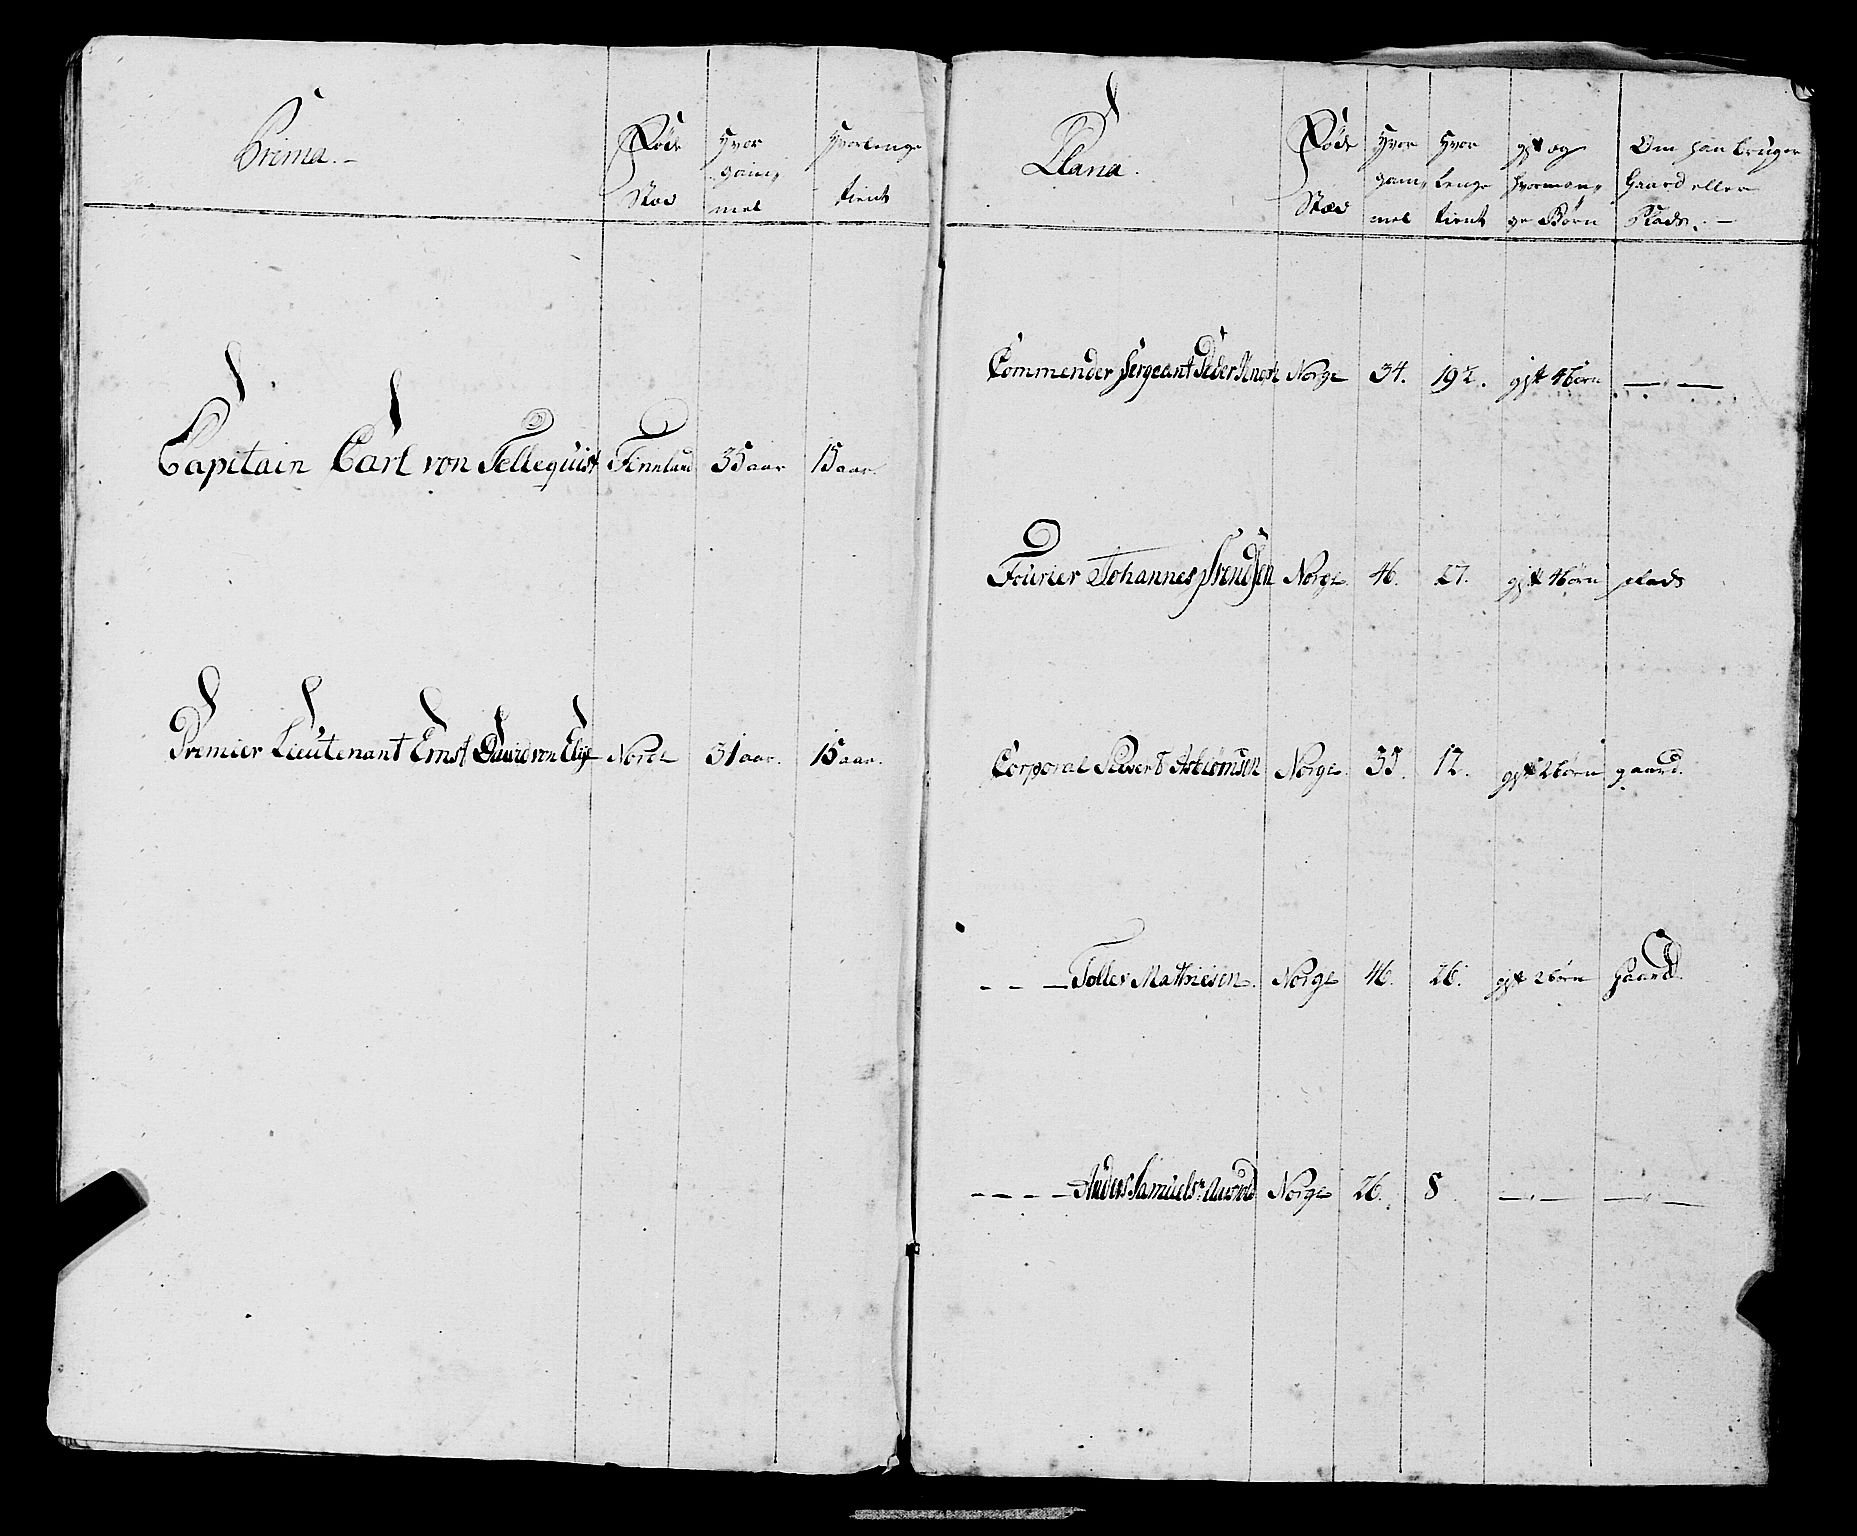 Prima.
Føde Stæd
Hvor gammel
Hvorlenge tient
Capitain Carl von Tellequist Finnland 35 aar 15 aar.
Premier Lieutenant Ernst David von Norge 31 aar. 15 aar.
Plana.
Føde Stæd
Hvor gammel
Hvor lenge tient
gift og hvormange Børn
Om han bruger Gaard eller Plads.
Commender Sergeant Peder Norge 34. 19½. gift 4 børn — . —
Fourier Johannes Svendsen Norge 46. 27. gift 4 børn plads
Corporal Sivert Norge. 35. 12. gift 2 børn gaard.
— — — Toller Mathiesen. Norge 46. 26. gift 2 børn gaard.
— — — — Anders Samuels: Norge 26. 8 — . — — . —